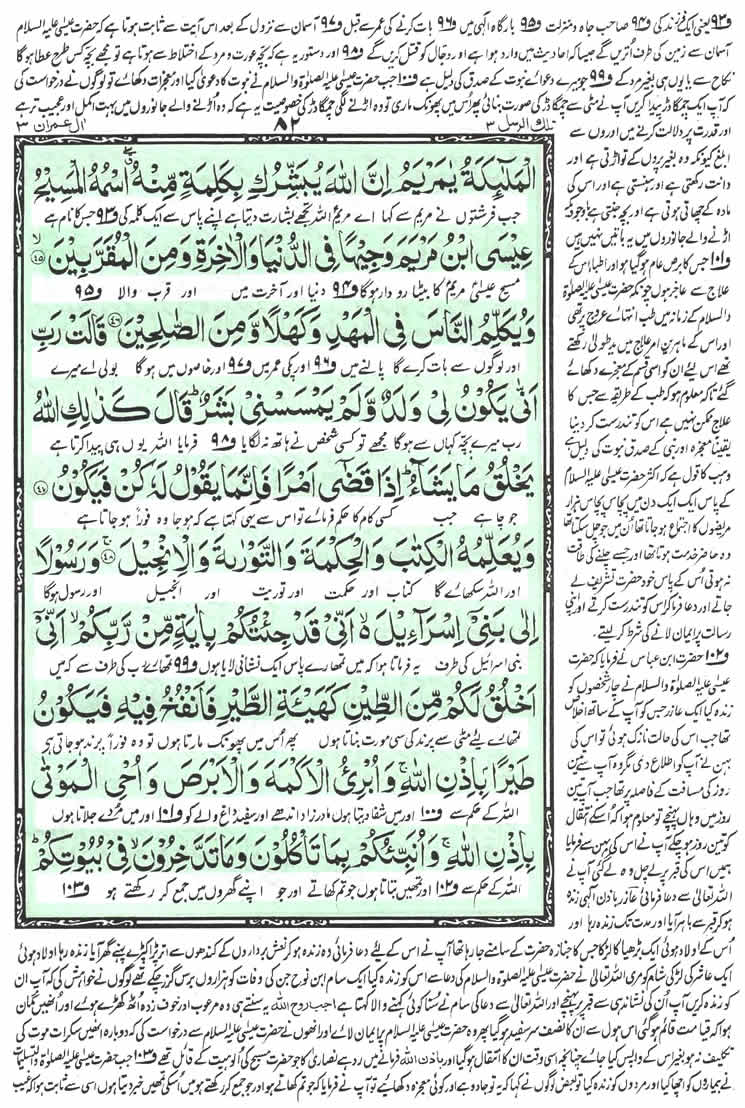 و۹۳ یعنی ایک فرزند کی و۹۴ صاحب جاہ و منزلت و۹۵ بارگاہ الٰہی میں و۹۶ بات کرنے کی عمر سے قبل و۹۷ آسمان سے نزول کے بعد اس آیت سے ثابت ہوتا ہے کہ حضرت عیسٰی علیہ السلام
آسمان سے زمین کی طرف اُتریں گے جیسا کہ احادیث میں وارد ہوا ہے اور دجال کو قتل کریں گے و۹۸ اور دستور یہ ہے کہ بچہ عورت و مرد کے اختلاط سے ہوتا ہے تو مجھے بچہ کس طرح عطا ہوگا
نکاح سے یا یوں ہی بغیر مرد کے و۹۹ جو میرے دعوائے نبوت کے صدق کی دلیل ہے و۱۰۰ جب حضرت عیسٰی علیہ الصلوٰۃ والسلام نے نبوت کا دعویٰ کیا اور معجزات دکھائے تو لوگوں نے درخواست کی
کہ آپ ایک چمگادڑ پیدا کریں آپ نے مٹی سے چمگادڑ کی صورت بنائی پھر اس میں پھونک ماری تو وہ اڑنے لگی چمگادڑ کی خصوصیت یہ ہے کہ وہ اُڑنے والے جانوروں میں بہت اکمل اور عجیب تر ہے
تلك الرسل ۳ ۸۲ اٰل عمران ۳
الْمَلٰٓئِكَةُ یٰمَرْیَمُ اِنَّ اللّٰهَ یُبَشِّرُكِ بِكَلِمَةٍ مِّنْهُ ۖۗ اسْمُهُ الْمَسِیْحُ
جب فرشتوں نے مریم سے کہا اے مریم اللہ تجھے بشارت دیتا ہے اپنے پاس سے ایک کلمہ کی و۹۳ جس کا نام ہے
عِیْسَى ابْنُ مَرْیَمَ وَجِیْهًا فِی الدُّنْیَا وَ الْاٰخِرَةِ وَ مِنَ الْمُقَرَّبِیْنَ ۙ۴۵
مسیح عیسٰی مریم کا بیٹا رو دار ہوگا و۹۴ دنیا اور آخرت میں اور قرب والا و۹۵
وَ یُكَلِّمُ النَّاسَ فِی الْمَهْدِ وَ كَهْلًا وَّ مِنَ الصّٰلِحِیْنَ ۴۶ قَالَتْ رَبِّ
اور لوگوں سے بات کرے گا پالنے میں و۹۶ اور پکی عمر میں و۹۷ اور خاصوں میں ہو گا بولی اے میرے
اَنّٰى یَكُوْنُ لِیْ وَلَدٌ وَّ لَمْ یَمْسَسْنِیْ بَشَرٌ ؕ قَالَ كَذٰلِكِ اللّٰهُ
رب میرے بچہ کہاں سے ہو گا مجھے تو کسی شخص نے ہاتھ نہ لگایا و۹۸ فرمایا اللہ یوں ہی پیدا کرتا ہے
یَخْلُقُ مَا یَشَآءُ ؕ اِذَا قَضٰۤى اَمْرًا فَاِنَّمَا یَقُوْلُ لَهٗ كُنْ فَیَكُوْنُ ۴۷
جو چاہے جب کسی کام کا حکم فرمائے تو اس سے یہی کہتا ہے کہ ہو جا وہ فوراً ہو جاتا ہے
وَ یُعَلِّمُهُ الْكِتٰبَ وَ الْحِكْمَةَ وَ التَّوْرٰىةَ وَ الْاِنْجِیْلَ ۚ۴۸ وَ رَسُوْلًا
اور اللہ سکھائے گا کتاب اور حکمت اور توریت اور انجیل اور رسول ہوگا
اِلٰى بَنِیْۤ اِسْرَآءِیْلَ ۙ۬ اَنِّیْ قَدْ جِئْتُكُمْ بِاٰیَةٍ مِّنْ رَّبِّكُمْ ۙ اَنِّیْۤ
بنی اسرائیل کی طرف یہ فرماتا ہوا کہ میں تمہارے پاس ایک نشانی لایا ہوں و۹۹ تمہارے رب کی طرف سے کہ میں
اَخْلُقُ لَكُمْ مِّنَ الطِّیْنِ كَهَیْــٴَـةِ الطَّیْرِ فَاَنْفُخُ فِیْهِ فَیَكُوْنُ
تمہارے لئے مٹی سے پرند کی سی مورت بناتا ہوں پھر اس میں پھونک مارتا ہوں تو وہ فوراً پرند ہو جاتی ہی
طَیْرًۢا بِاِذْنِ اللّٰهِ ۚ وَ اُبْرِئُ الْاَكْمَهَ وَ الْاَبْرَصَ وَ اُحْیِ الْمَوْتٰى
اللہ کے حکم سے و۱۰۰ اور میں شفا دیتا ہوں مادر زاد اندھے اور سفید داغ والے کو و۱۰۱ اور میں مُردے جلاتا ہوں
بِاِذْنِ اللّٰهِ ۚ وَ اُنَبِّئُكُمْ بِمَا تَاْكُلُوْنَ وَ مَا تَدَّخِرُوْنَ ۙ فِیْ بُیُوْتِكُمْ ؕ
اللہ کے حکم سے و۱۰۲ اور تمہیں بتاتا ہوں جو تم کھاتے اور جو اپنے گھروں میں جمع کر رکھتے ہو و۱۰۳
اور قدرت پر دلالت کرنے میں اوروں سے
ابلغ کیونکہ وہ بغیر پروں کے تو اڑتی ہے اور
دانت رکھتی ہے اور ہنستی ہے اور اس کی
مادہ کے چھاتی ہوتی ہے اور بچہ جنتی ہے باوجودیکہ
اڑنے والے جانوروں میں یہ باتیں نہیں ہیں
و۱۰۱ جس کا برص عام ہو گیا ہو اور اطبا اس کے
علاج سے عاجز ہوں چونکہ حضرت عیسٰی علیہ الصلوٰۃ
والسلام کے زمانہ میں طب انتہائے عروج پر تھی
اور اس کے ماہرین امر علاج میں ید طولیٰ رکھتے
تھے اس لئے ان کو اسی قسم کے معجزے دکھائے
گئے تاکہ معلوم ہو کہ طب کے طریقہ سے جس کا
علاج ممکن نہیں ہے اس کو تندرست کر دینا
یقیناً معجزہ اور نبی کے صدق نبوت کی دلیل ہے
وہب کا قول ہے کہ اکثر حضرت عیسٰی علیہ السلام
کے پاس ایک ایک دن میں پچاس پچاس ہزار
مریضوں کا اجتماع ہو جاتا تھا اُن میں جو چل سکتا تھا
وہ حاضر خدمت ہوتا تھا اور جسے چلنے کی طاقت
نہ ہوتی اُس کے پاس خود حضرت تشریف لے
جاتے اور دعا فرما کر اس کو تندرست کرتے اور اپنی
رسالت پر ایمان لانے کی شرط کر لیتے۔
و۱۰۲ حضرت ابن عباس نے فرمایا کہ حضرت
عیسٰی علیہ الصلوٰۃ والسلام نے چار شخصوں کو
زندہ کیا ایک عازر جس کو آپ کے ساتھ اخلاص
تھا جب اس کی حالت نازک ہوئی تو اس کی
بہن نے آپ کو اطلاع دی مگر وہ آپ سے تین
روز کی مسافت کے فاصلہ پر تھا جب آپ تین
روز میں وہاں پہنچے تو معلوم ہوا کہ اسکے انتقال
کو تین روز ہو چکے آپ نے اس کی بہن سے فرمایا
ہمیں اس کی قبر پر لے چل وہ لے گئی آپ نے
اللہ تعالیٰ سے دعا فرمائی عازر باذن الٰہی زندہ
ہو کر قبر سے باہر آیا اور مدت تک زندہ رہا اور
اُس کے اولاد ہوئی ایک بڑھیا کا لڑکا جس کا جنازہ حضرت کے سامنے جا رہا تھا آپ نے اس کے لئے دعا فرمائی وہ زندہ ہو کر نعش برداروں کے کندھوں سے اتر پڑا کپڑے پہنے گھر آیا زندہ رہا اولاد ہوئی
ایک عاشر کی لڑکی شام کو مری اللہ تعالیٰ نے حضرت عیسٰی علیہ الصلوٰۃ والسلام کی دعا سے اس کو زندہ کیا ایک سام ابن نوح جن کی وفات کو ہزاروں برس گزر چکے تھے لوگوں نے خواہش کی کہ آپ ان
کو زندہ کریں آپ اُن کی نشاندہی سے قبر پر پہنچے اور اللہ تعالیٰ سے دعا کی سام نے سنا کوئی کہنے والا کہتا ہے اجب روح اللہ یہ سنتے ہی وہ مرعوب اور خوف زدہ اُٹھ کھڑے ہوئے اور اُنھیں گمان
ہوا کہ قیامت قائم ہو گئی اس ہول سے اُن کا نصف سر سفید ہو گیا پھر وہ حضرت عیسٰی علیہ الصلوٰۃ والسلام پر ایمان لائے اور انھوں نے حضرت عیسٰی علیہ السلام سے درخواست کی کہ دوبارہ انھیں سکرات موت کی
تکلیف نہ ہو بغیر اس کے واپس کیا جائے چنانچہ اسی وقت ان کا انتقال ہو گیا اور باذن اللہ فرمانے میں رد ہے نصاریٰ کا جو حضرت مسیح کی اُلوہیت کے قائل تھے و۱۰۳ جب حضرت عیسٰی علیہ الصلوٰۃ والتسلیمات
نے بیماروں کو اچھا کیا اور مردوں کو زندہ کیا تو بعض لوگوں نے کہا کہ یہ تو جادو ہے اور کوئی معجزہ دکھائیے تو آپ نے فرمایا کہ جو تم کھاتے ہو اور جو جمع کر رکھتے ہو میں اُسکی تمھیں خبر دیتا ہوں اسی سے ثابت ہوا کہ غیب